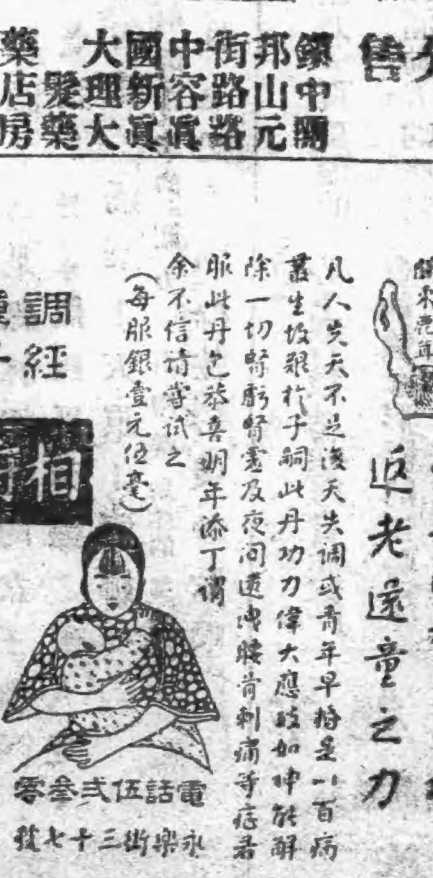 售
邦街中國大藥
中山路容新理髮店
關元路真真大藥房
返老還童之力
凡人先天不足後天失調或青年早婚是以百病
叢生故艱於子嗣此丹功力偉大應效如神能解
除一切腎虧腎寒及夜间遗洩腰骨刺痛等症君
服此丹包恭喜明年添丁謂
余不信请嘗試之
(每服銀壹元伍毫)
調經
相
電話伍弍叁零
永樂街三十七號